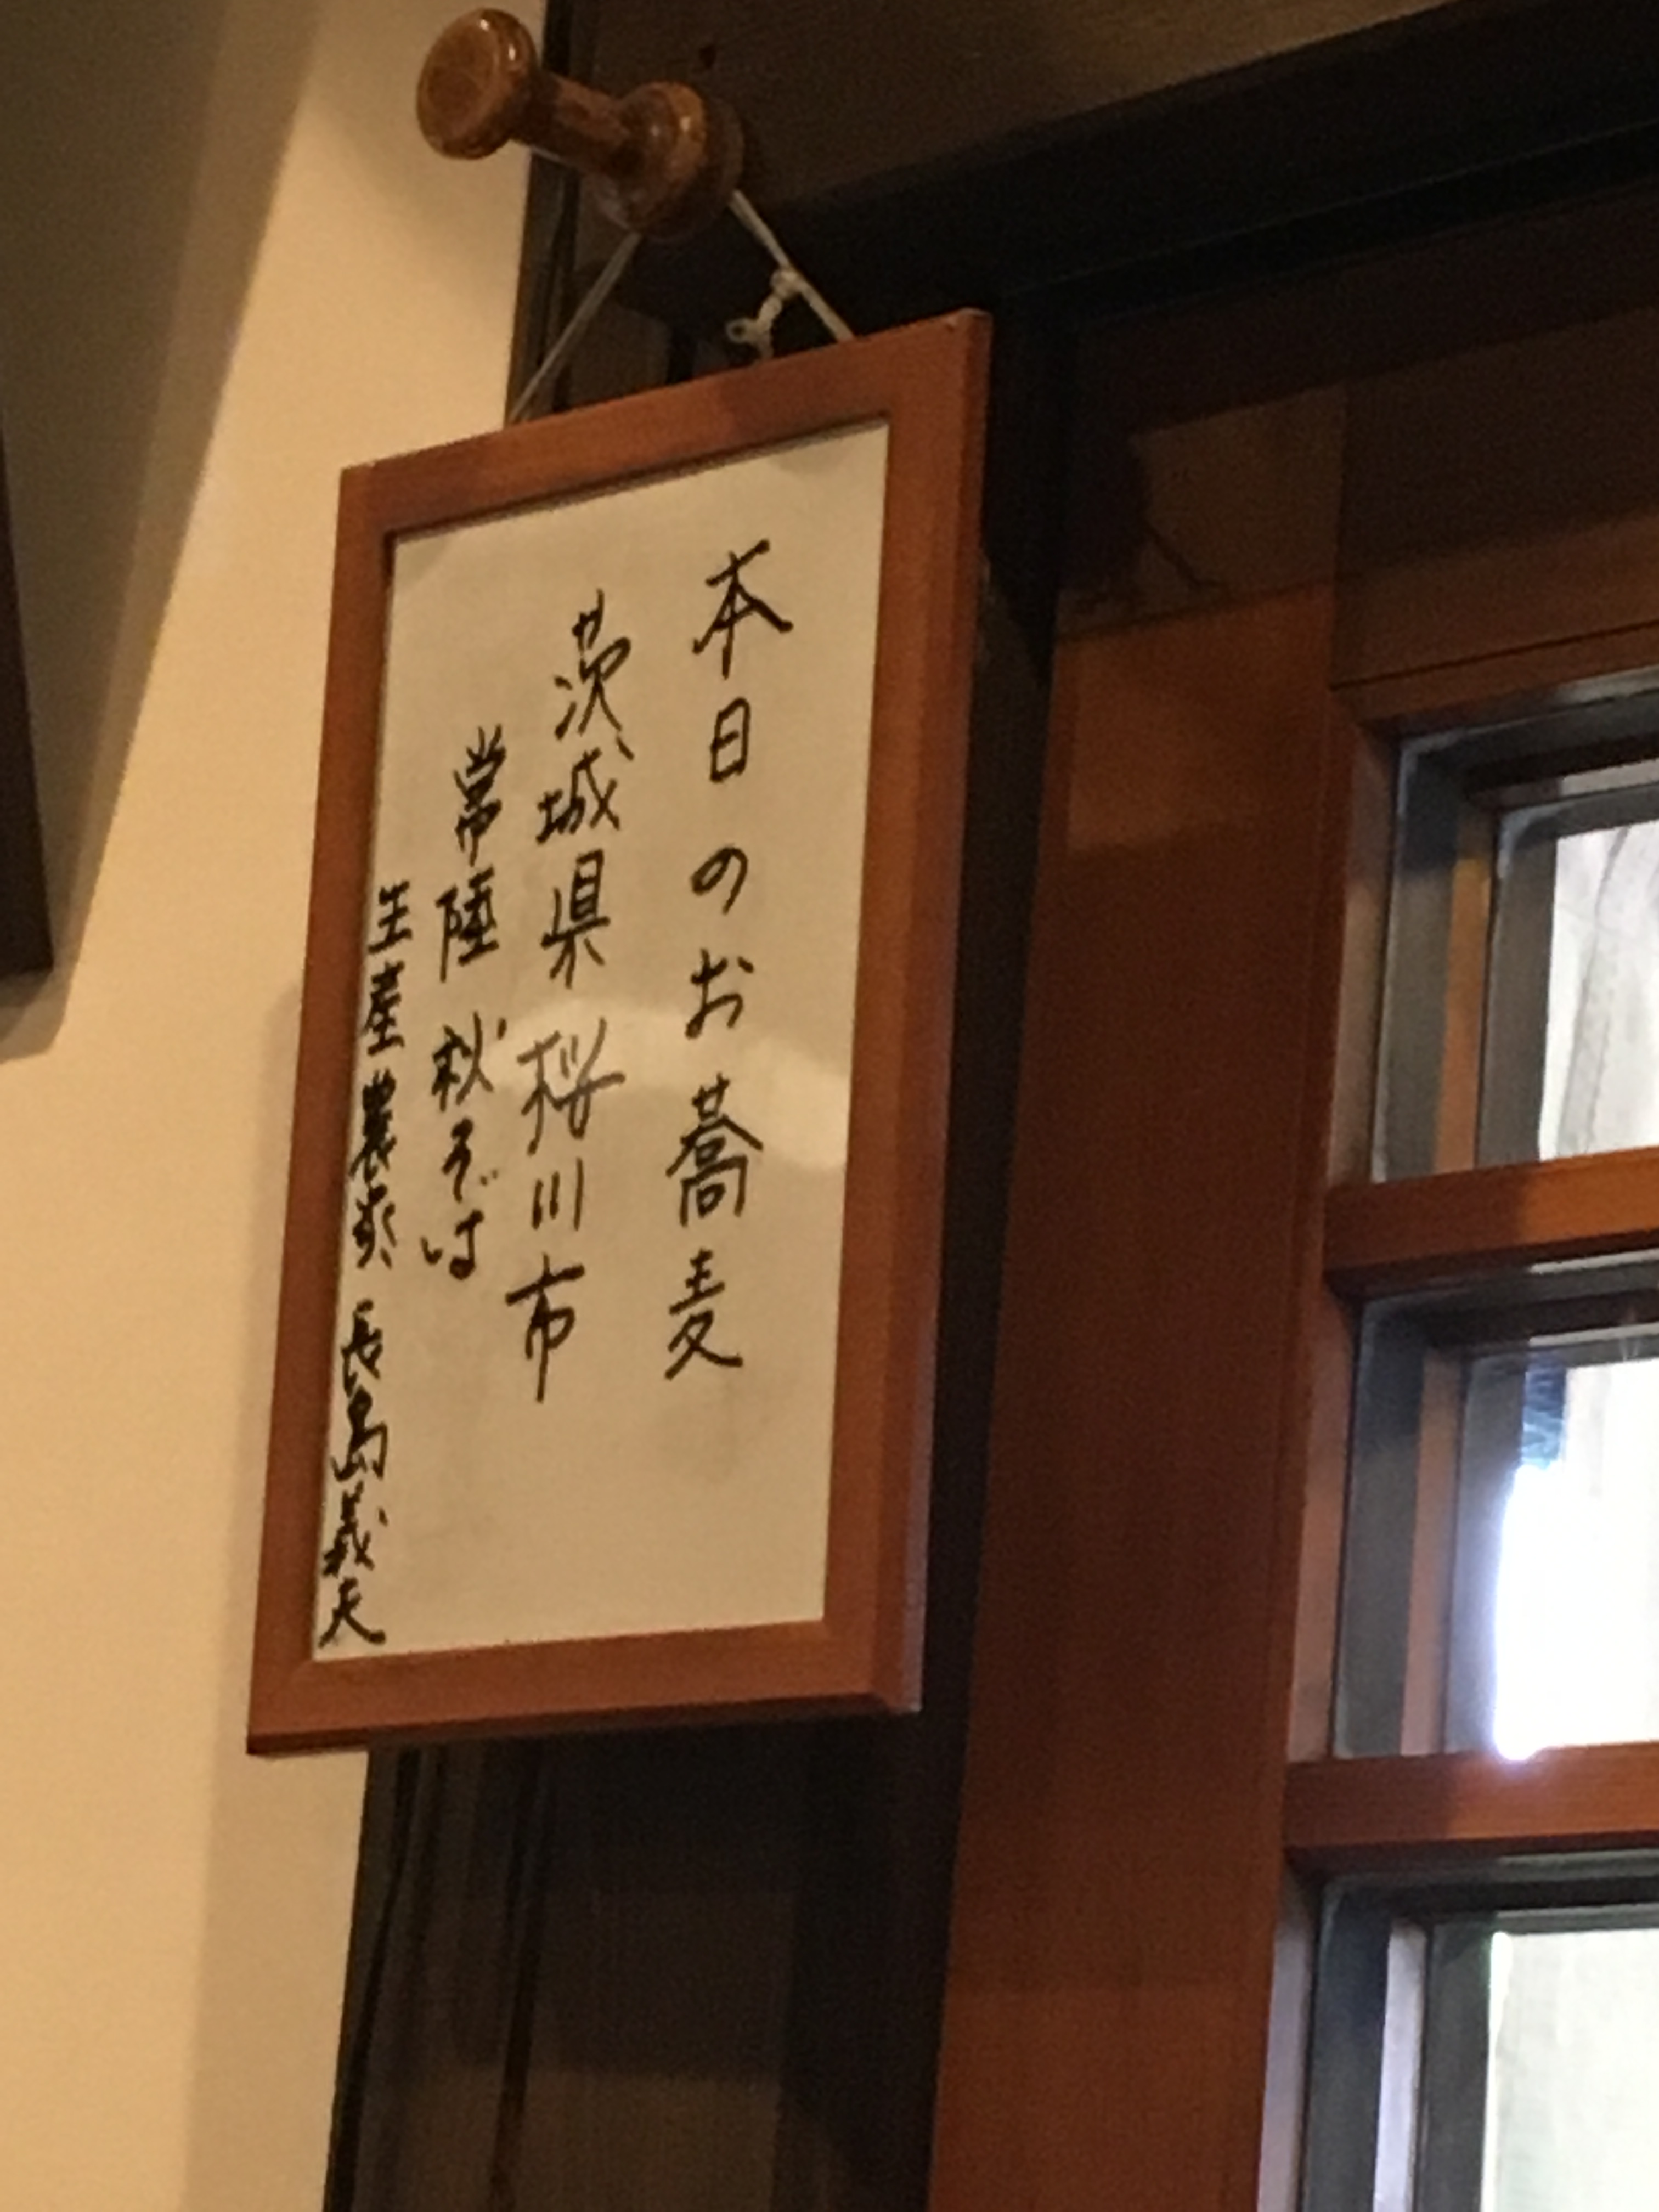 本日のお蕎麦
茨城県 桜川市
常陸 秋そば
生産農家 長島義夫